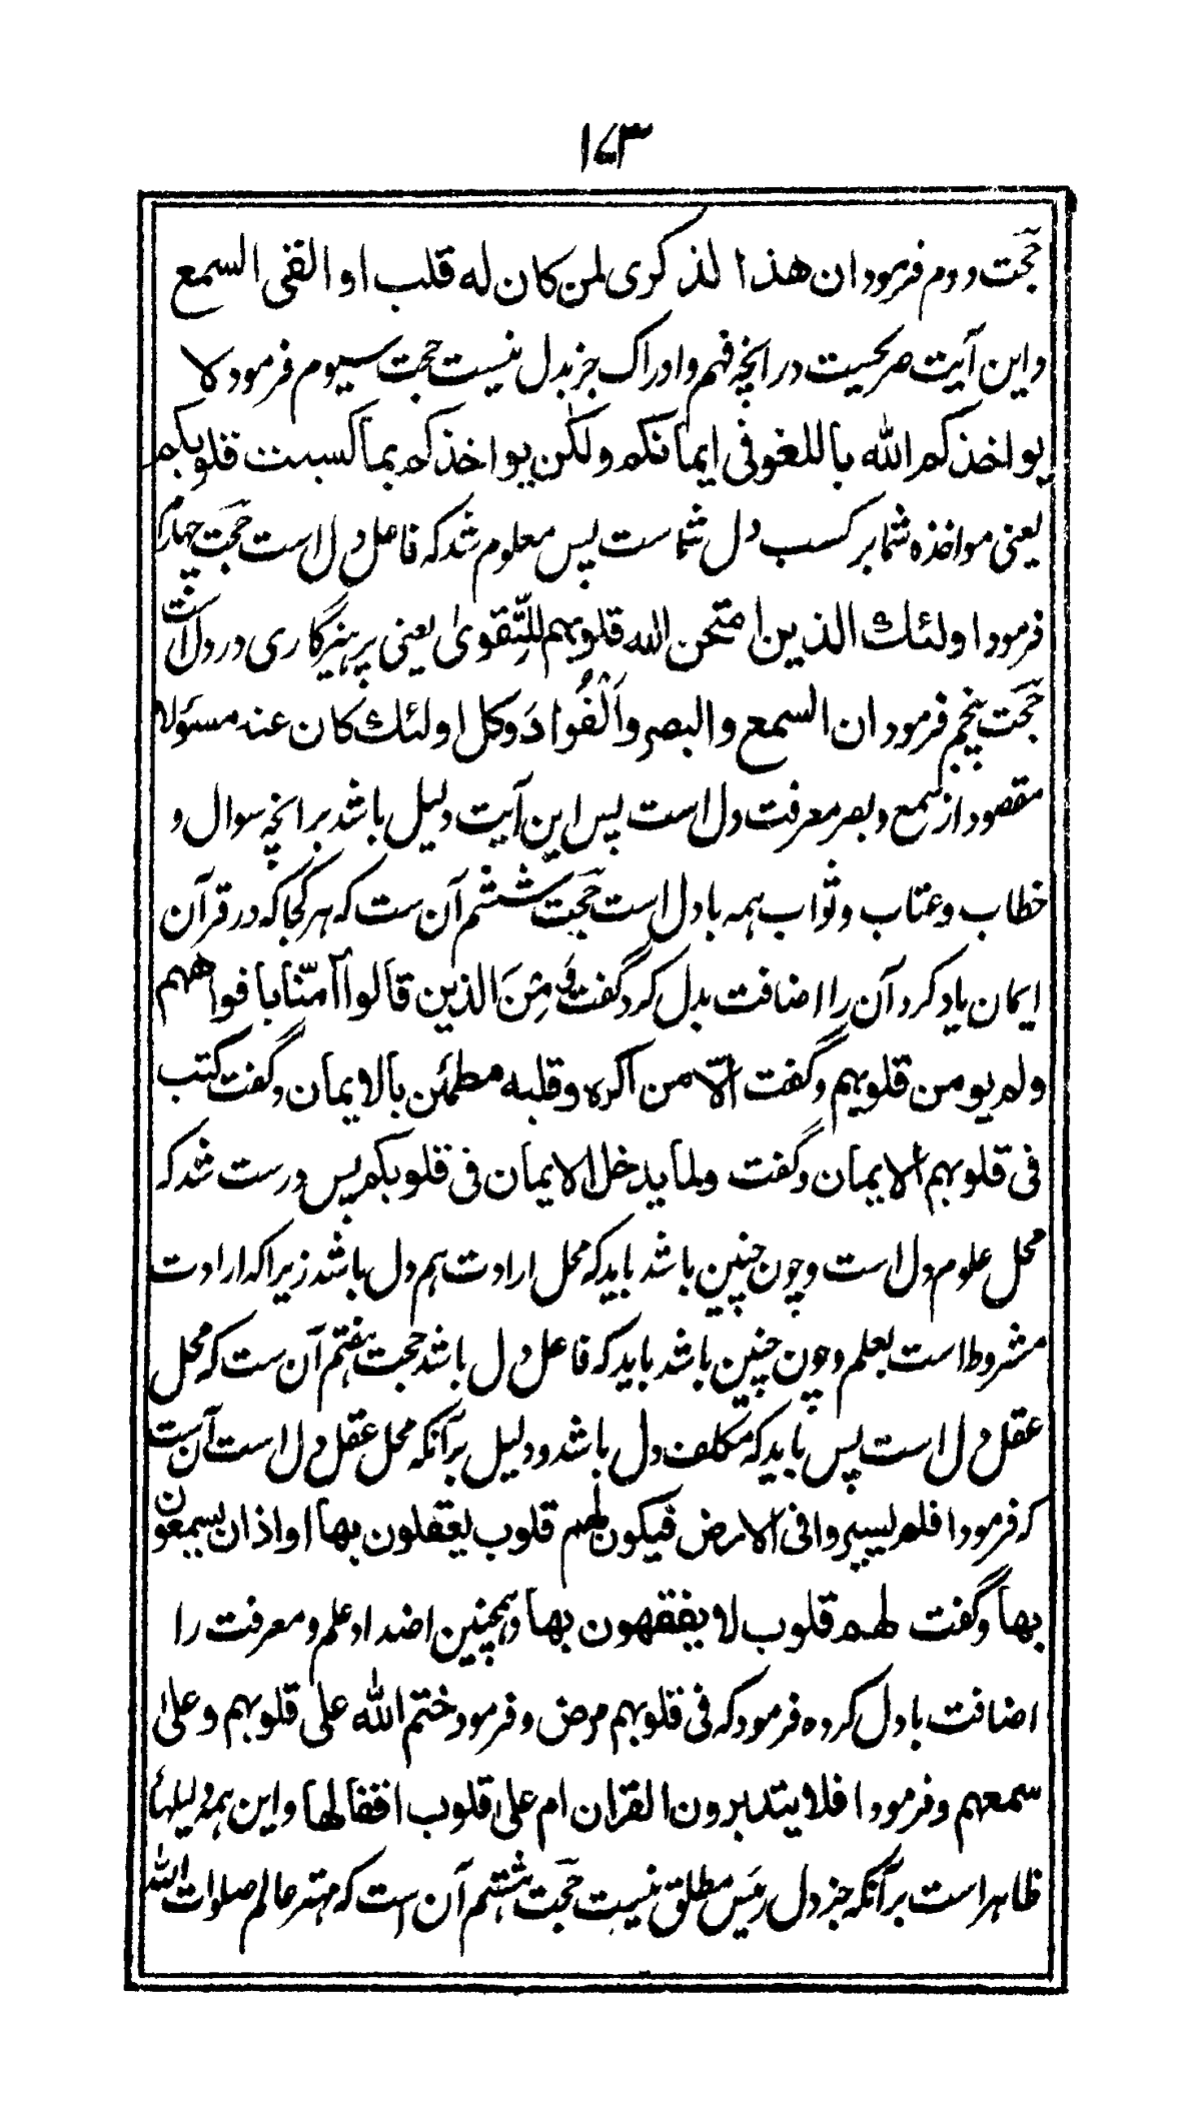 ۱۷۳
حجّت دوم فرمود ان هذا لذكرى لمن كان له قلب او القى السمع
و این آیت صریحیست در انچه فهم و ادراک جز بدل نیست حجت سیوم فرمود لا
يواخذكم الله باللغو فى ايمانكم ولكن يواخذكم بما كسبت قلوبكم
یعنی مواخذه شما بر کسب دل شماست پس معلوم شد که فاعل دل است حجّت چهارم
فرمود اولئك الذين امتحن الله قلوبهم للتّقوىٰ یعنی پرهیزگاری در دل است
حجّت پنجم فرمود ان السمع والبصر والْفُوَادَ وكل اولئك كان عنه مسئولا
مقصود از سمع و بصر معرفت دل است پس این آیت دلیل باشد بر انچه سوال و
خطاب و عتاب و ثواب همه با دل است حجّت ششم آن ست که هر کجا که در قرآن
ایمان یاد کرد آن را اضافت بدل کرد گفت قوله مِنَ الذين قالوا آمنّا بافواههم
ولم يومن قلوبهم و گفت الّا من اكره وقلبه مطمئن بالايمان و گفت كتب
فى قلوبهم الايمان و گفت ولما يدخل الايمان فى قلوبكم پس درست شد که
محل علوم دل است و چون چنین باشد باید که محل ارادت هم دل باشد زیرا که ارادت
مشروط است بعلم و چون چنین باشد باید که فاعل دل باشد حجت هفتم آن ست که محل
عقل دل است پس باید که مکلف دل باشد و دلیل بر آنکه محل عقل دل است آن ست
که فرمود افلم يسيروا فى الارض فيكون لهم قلوب يعقلون بها او اذان يسمعون
بها و گفت لهم قلوب لا يفقهون بها و همچنین اضداد علم و معرفت را
اضافت با دل کرده فرمود که فى قلوبهم مرض و فرمود ختم الله على قلوبهم وعلىٰ
سمعهم و فرمود افلا يتدبرون القران ام على قلوب اقفالها و این همه دلیلها
ظاهر است بر آنکه جز دل رئیس مطلق نیست حجّت هشتم آن است که مهتر عالم صلوات الله